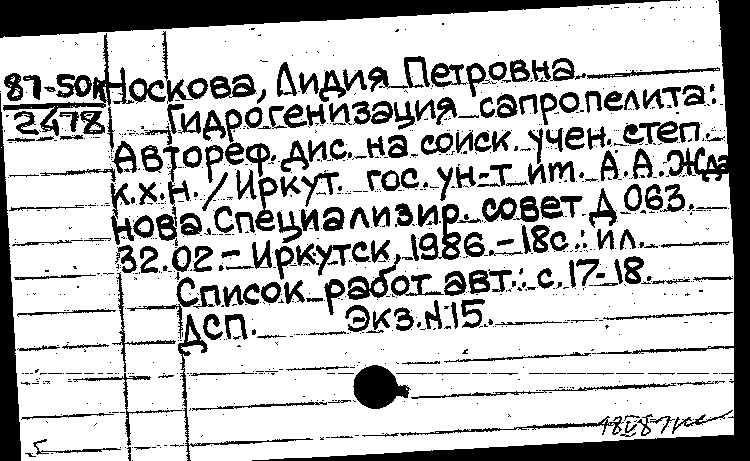 87-50к
2478
Носкова, Лидия Петровна
Гидрогенизация сапропелита:
Автореф. дис. на соиск. учен. степ.
к.х.н. / Иркут. гос. ун-т им. А.А. Жда
нова. Специализир. совет Д 063.
32.02.- Иркутск, 1986.-18с.: ил.
Список работ авт.: с. 17-18.
ДСП. Экз. N 15.